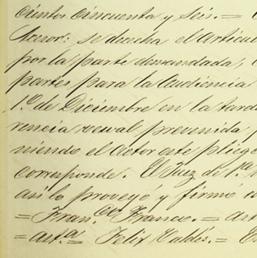 cientos cincuenta y seis. =
Señor: se desecha el artícu
por la parte demandada,
partes para la audiencia
1º de Diciembre en la tard
rencia verval prevenida
niendo el actor este pliego
corresponde. El Juez de 1ª
así lo proveyó y firmó
= Fran.co Franco. =
= Félix Valdés. =